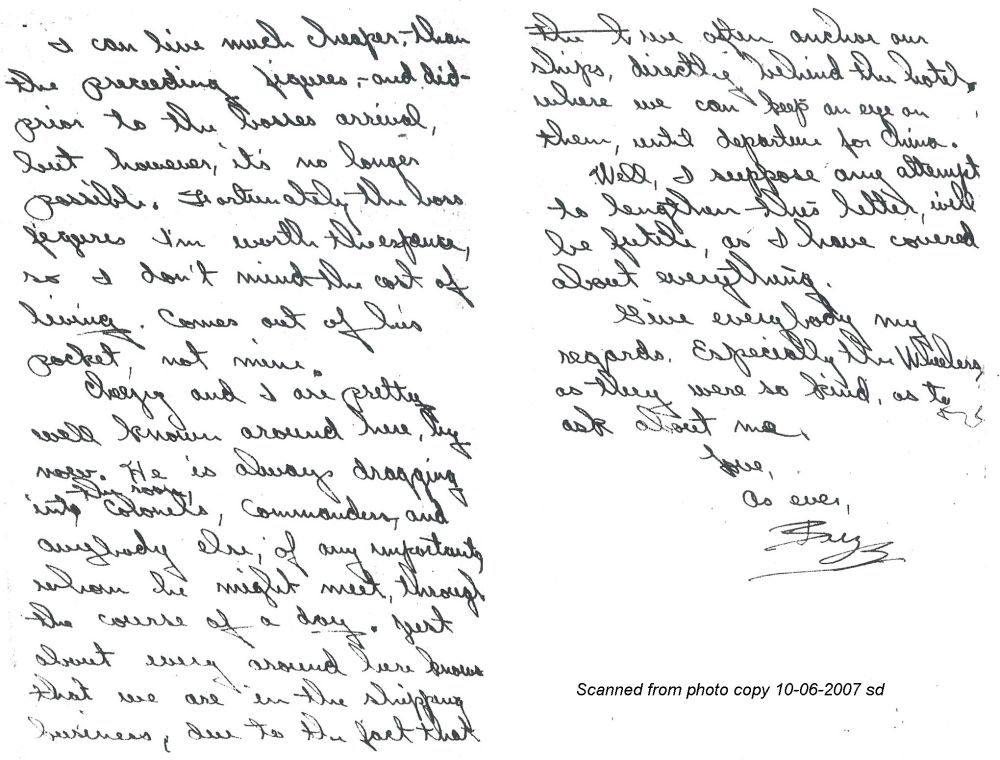 I can live much cheaper, than
the preceeding figures, - and did -
prior to the bosses arrival,
but however, it's no longer
possible. Fortunately the boss
figures I'm worth the expense,
so I don't mind the cost of
living. Comes out of his
pocket, not mine.
and I are pretty
well known around here, by
now. He is always dragging
the room,
into Colonels, Commanders, and
anybody else, of any importants
whom he might meet, through
the course of a day. Just
about every around here knows
that we are in the shipping
business, due to the fact that
the t we often anchor our
ships, directly behind the hotel,
where we can keep an eye on
them, until departure for China.
Well, I suppose any attempt
to lengthen this letter, will
be futile, as I have covered
about everything.
Give everybody my
regards. Especially the Wheelers,
as they were so kind, as to
ask about me.
Love,
as ever,
Scanned from photo copy 10-06-2007 sd